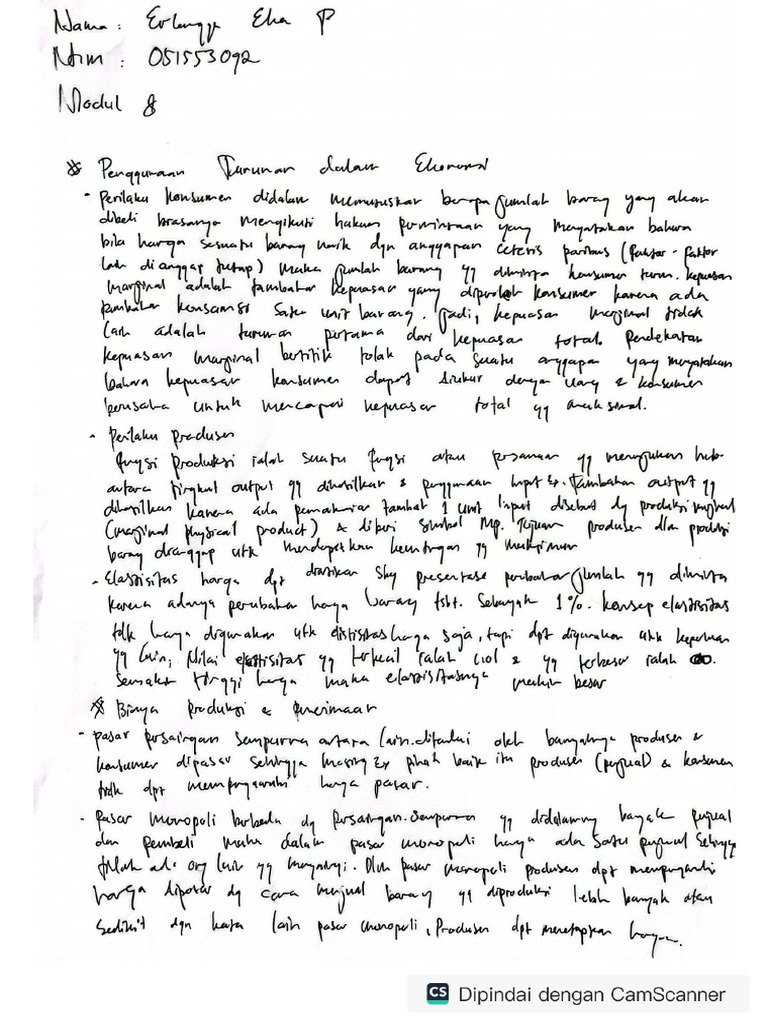 Nama : Erlangga Eka P
Nim : 051553092
Modul 8
Penggunaan Turunan dalam Ekonomi
- Perilaku konsumen didalam memutuskan berapa jumlah barang yang akan
dibeli biasanya mengikuti hukum permintaan yang menyatakan bahwa
bila harga sesuatu barang naik dgn anggapan ceteris paribus (faktor-faktor
lain dianggap tetap) maka jumlah barang yg diminta konsumen turun. kepuasan
marginal adalah tambahan kepuasan yang diperoleh konsumen karena ada
tambahan konsumsi satu unit barang. Jadi, kepuasan marginal tidak
lain adalah turunan pertama dari kepuasan total. Pendekatan
kepuasan marginal bertitik tolak pada suatu anggapan yang menyatakan
bahwa kepuasan konsumen dapat diukur dengan uang & konsumen
berusaha untuk mencapai kepuasan total yg maksimal.
- Perilaku Produsen
fungsi produksi ialah suatu fungsi atau persamaan yg menunjukan hub.
antara tingkat output yg dihasilkan & penggunaan input 2x. Tambahan output yg
dihasilkan karena ada pemakaian tambah 1 unit input disebut dg produksi marginal
(marginal physical product) & diberi simbol MP. Tujuan produsen dlm produksi
barang dianggap utk mendapatkan keuntungan yg maksimum
- Elastisitas harga dpt diartikan sbg presentase perubahan jumlah yg diminta
karena adanya perubahan harga barang tsbt. Sebanyak 1%. konsep elastisitas
tdk hanya digunakan utk elastisitas harga saja, tapi dpt digunakan utk keperluan
yg lain, Nilai elastisitas yg terkecil ialah nol & yg terbesar ialah ∞.
Semakin tinggi harga maka elastisitasnya makin besar
Biaya Produksi & Penerimaan
- pasar persaingan sempurna antara lain ditandai oleh banyaknya produsen &
konsumen dipasar sehingga masing 2x pihak baik itu produsen (penjual) & konsumen
tdk dpt mempengaruhi harga pasar.
- Pasar monopoli berbeda dg persaingan sempurna yg didalamnya banyak penjual
dan pembeli maka dalam pasar monopoli hanya ada satu penjual sehingga
tidak ada org lain yg menyaingi. Dlm pasar monopoli produsen dpt mempengaruhi
harga dipasar dg cara menjual barang yg diproduksi lebih banyak atau
sedikit dgn kata lain pasar monopoli, Produsen dpt menetapkan harga.
CS Dipindai dengan CamScanner